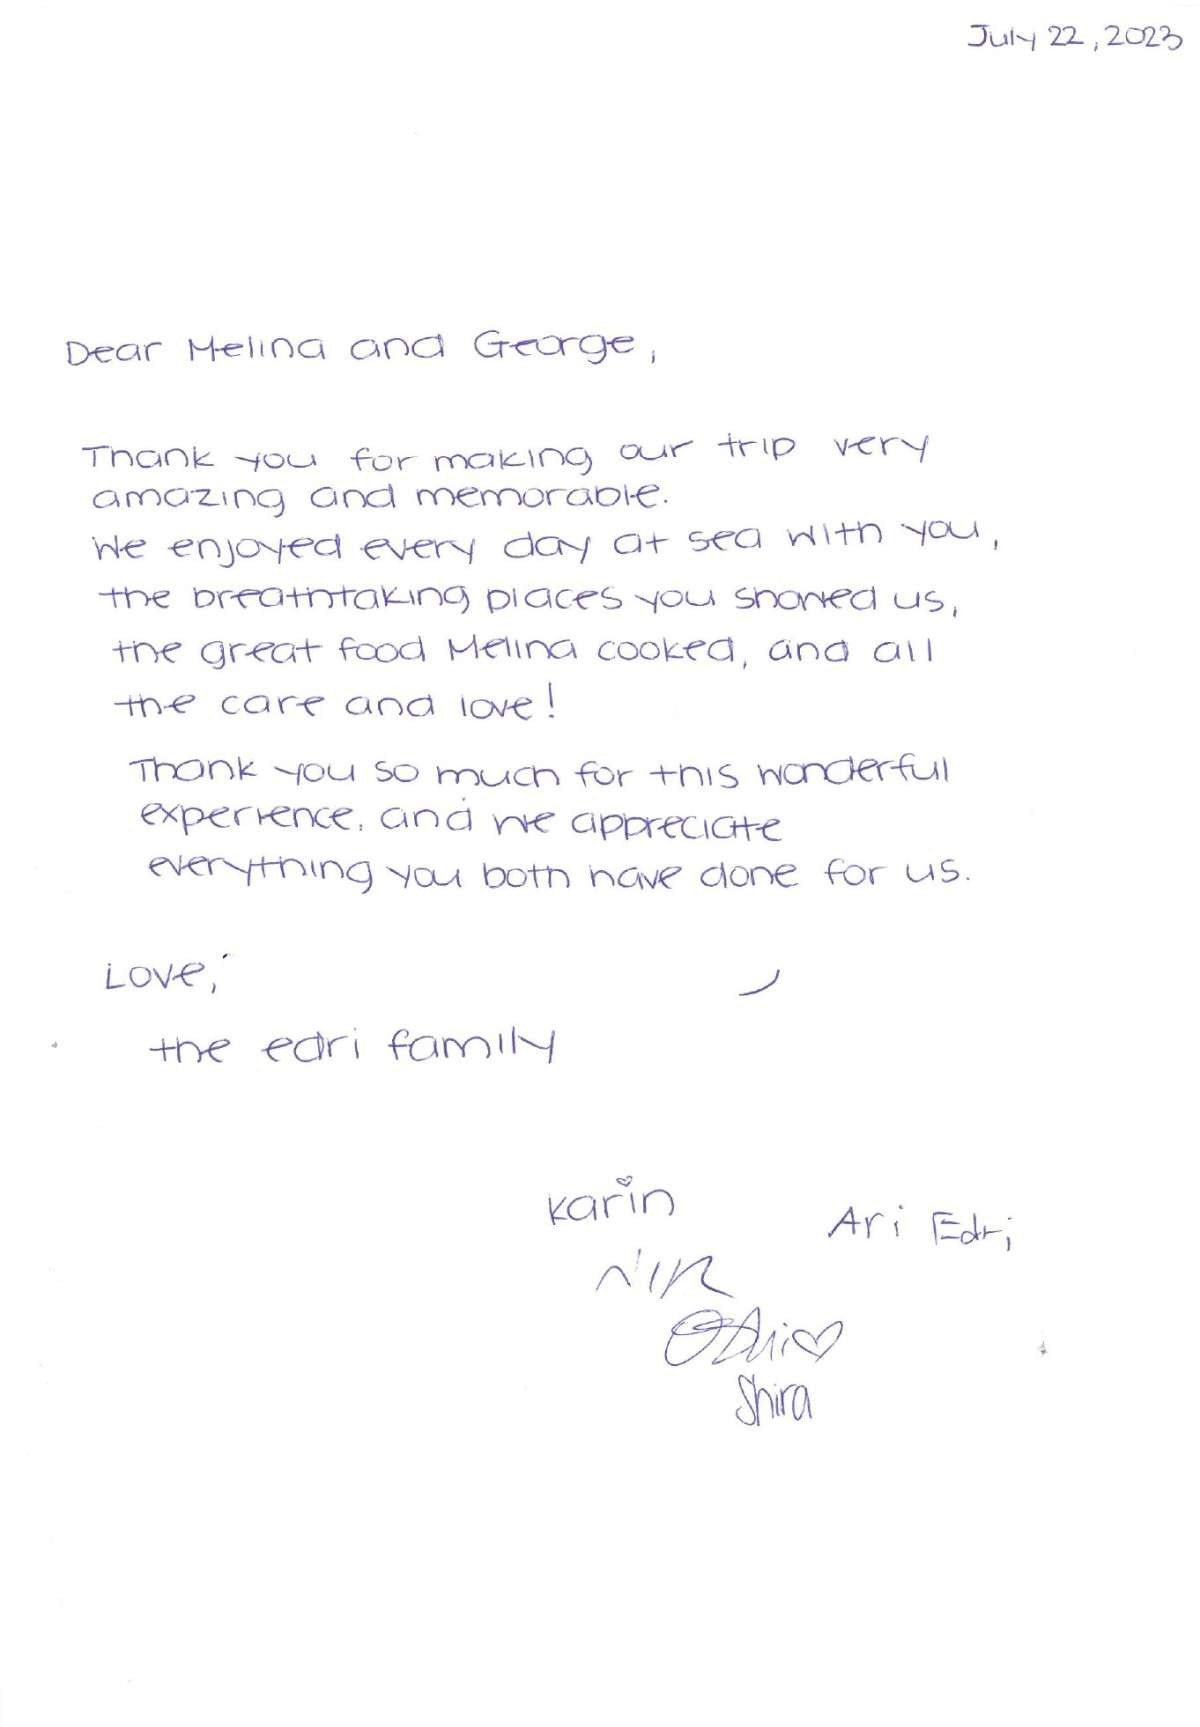 July 22, 2023
Dear Melina and George,
Thank you for making our trip very
amazing and memorable.
We enjoyed every day at sea with you,
the breathtaking places you showed us,
the great food Melina cooked, and all
the care and love!
Thank you so much for this wonderful
experience, and we appreciate
everything you both have done for us.
Love,
the edri family
Karin
Ari Edri
NIR
Shira